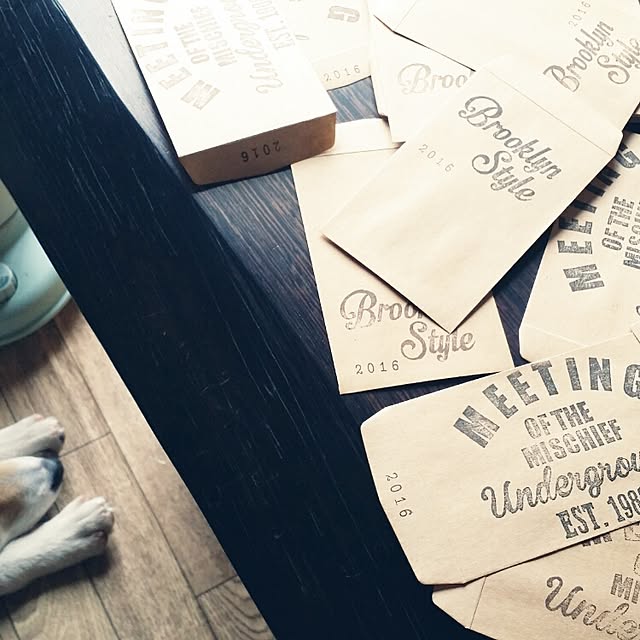 MEETING
OF THE
MISCHIEF
Underground
EST. 198
2016
G
2016
Broo
2016
Brooklyn
Style
Brooklyn
Style
2016
Broo
Style
2016
MEETING
OF THE
MISC
MEETING
OF THE
MISCHIEF
Undergrou
EST. 198
2016
MI
Undergro